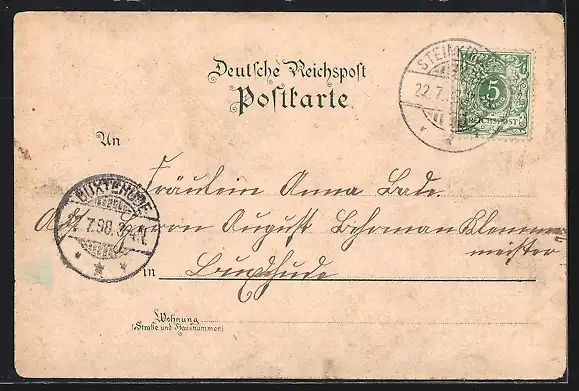 Deutsche Reichspost
Postkarte
STEINKIR
22.7.
5
REICHSPOST
An
Fräulein Anna Bade.
Herrn August Behrman Klemmer
meister
BUXTEHUDE
7.98.
in Buxtehude
Wohnung
(Straße und Hausnummer)